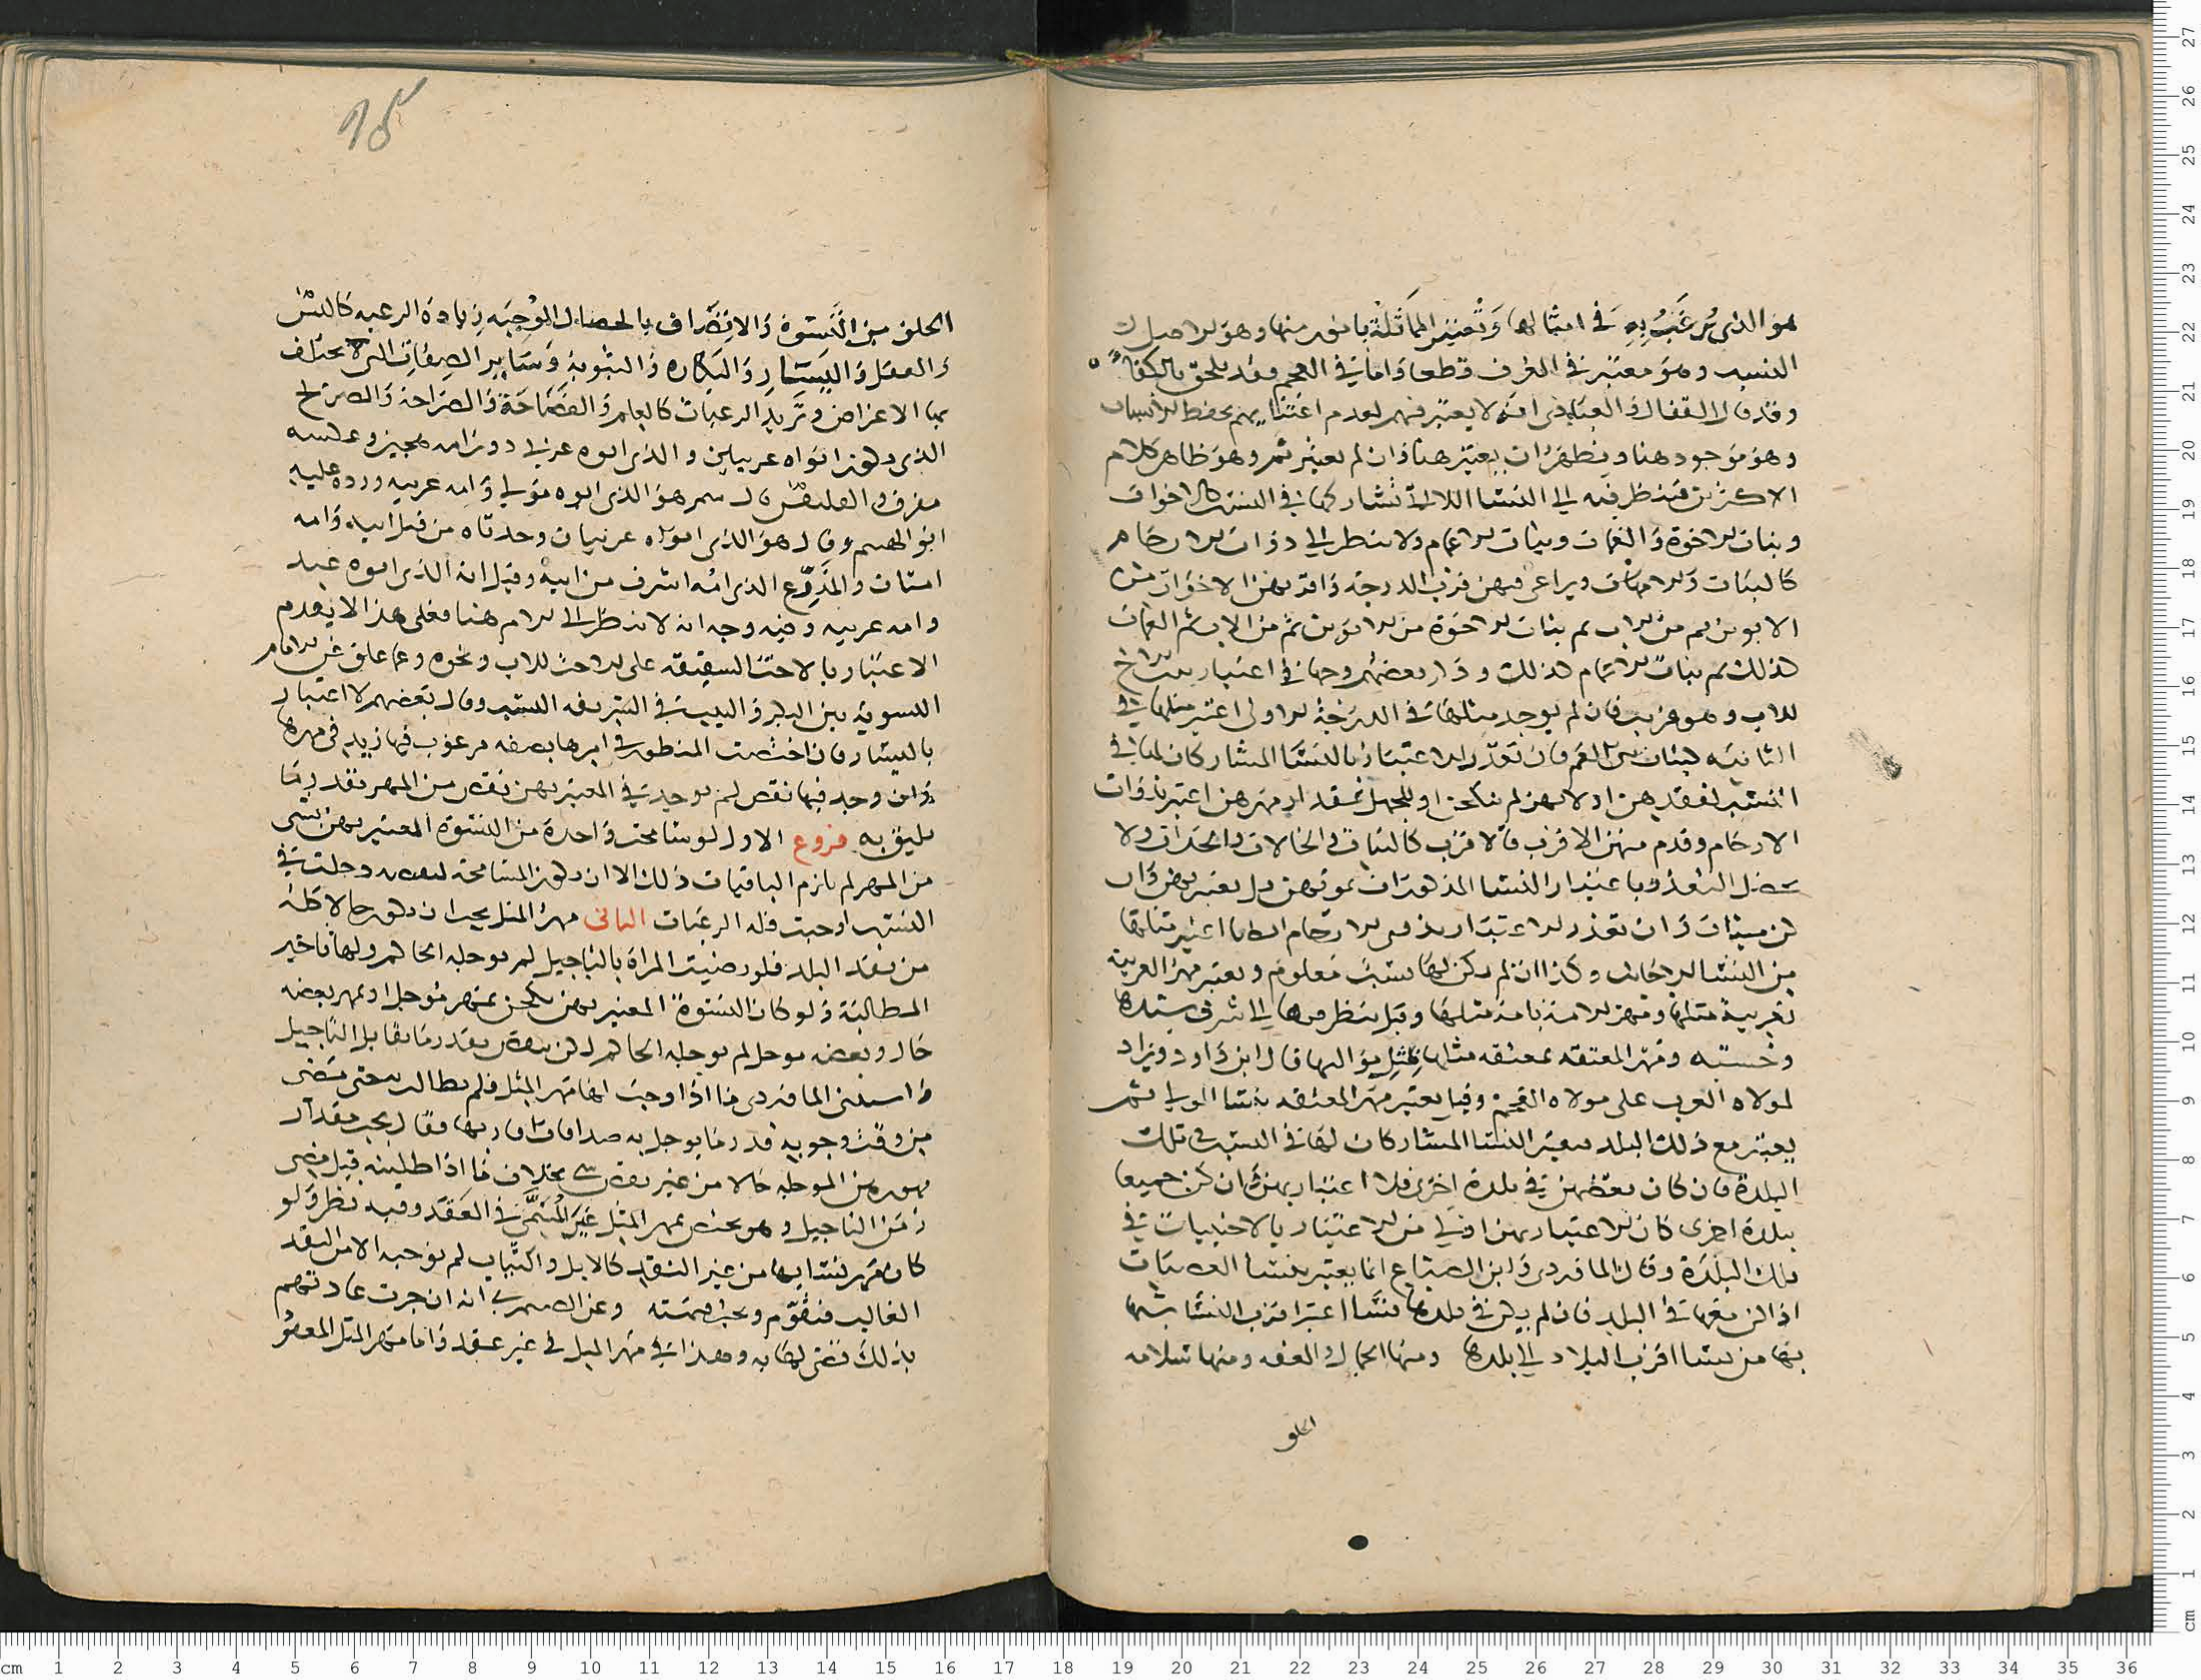 هو الذي يُرغَبُ بِهِ في امثالها وتُعتبَر المماثَلةُ بامور منها وهو الاصل
النسب وهو معتبر في العرف قطعا واما في العجم وقد يلحق بالكفاءة
وقد قال القفال والعبادي انه لا يعتبر فيهم لعدم اعتنايهم بحفظ الانساب
وهو موجود هنا ويظهر ان يعتبر هنا وان لم يعتبر ثم وهو ظاهر كلام
الاكثرين فينظر فيه الى النسا اللاتي تشاركها في النسب كالاخوات
وبنات الاخوة والعمات وبنات الاعمام ولا ينظر الى ذوات الارحام
كالبنات والامهات ويراعى فيهن قرب الدرجة واقربهن الاخوات من
الابوين ثم من الاب ثم بنات الاخوة من الابوين ثم من الاب ثم العمات
كذلك ثم بنات الاعمام كذلك و بعضهم وجها في اعتبار بنت الاخ
للاب وهو غريب فان لم يوجد مثلها في الدرجة الاولى اعتبر مثلها في
الثانية كبنات بني العم فان تعذر الاعتبار بالنسا المشاركات لها في
النسب لفقدهن او لانهن لم ينكحن او للجهل بمقدار مهرهن اعتبر بذوات
الارحام وقدم منهن الاقرب فالاقرب كالبنات والخالات والجدات ولا
التعذر باعتبار النسا المذكورات بموتهن بل يعتبر بهن وان
كن ميتات وان تعذر الاعتبار بذوي الارحام ايضا اعتبر مثلها
من النسا الاجانب وكذا ان لم يكن لها نسب معلوم ويعتبر مهر العربية
بعربية مثلها ومهر الامة بامة مثلها وقيل ينظر فيها الى شرف سيدها
وخسته ومهر المعتقة بمعتقة مثلها مواليها قال ابن داود ويزاد
لمولاه العرب على مولاه العجم وقيل يعتبر مهر المعتقه بنسا الموالي ثم
يعتبر مع ذلك البلد فيعتبر النسا المشاركات لها في النسب في تلك
البلدة فان كان بعضهن في بلدة اخرى فلا اعتبار بهن وان كن جميعا
ببلدة اخرى كان الاعتبار بهن اولى من الاعتبار بالاجنبيات في
تلك البلدة وقال الماوردي وابن الصباغ انما يعتبر بنسا العصبات
اذا كن معها في البلد فان لم يكن في بلدها نسا اعتبر اقرب النسا شبها
بها من نسا اقرب البلاد الى بلدها ومنها الجمال والعفه ومنها سلامه
الخلق
الخلق من النسوة والانصراف بالخصال الموجبه زيادة الرغبه كالسن
والعقل واليسار والبكاره والثيوبة وساير الصفات التي تختلف
بها الاغراض وتزيد الرغبات كالعلم والفصاحة والصراحة والصريح
الذي يكون ابواه عربيين والذي ابوه عربي دون امه هجين وعكسه
مقرف والفلنقس قال هو الذي ابوه مولى وامه عربيه ورده عليه
ابو الهيثم وقال هو الذي ابواه عربيان وجدتاه من قبل ابيه وامه
امتان والمذرع الذي امه اشرف من ابيه وقيل انه الذي ابوه عبد
وامه عربيه وفيه وجه انه لا ينظر الى الام هنا فعلى هذا لا يقدم
الاعتبار بالاخت الشقيقه على الاخت للاب ونحوه وعما علق عن الامام
التسوية بين البكر والثيب في الشريفه النسب وقال بعضهم لا اعتبار
باليسار فان اختصت المنظور في امرها بصفه مرغوب فيها زيد في مهرها
وان وجد فيها نقص لم يوجد في المعتبر بهن نقص من المهر بقدر ما
يليق به فروع الاول لو سامحت واحدة من النسوة المعتبر بهن بشي
من المهر لم يلزم الباقيات ذلك الا ان يكون المسامحة لنقص دخلت في
النسب اوجبت قلة الرغبات الثاني مهر المثل يجب ان يكون حالا كله
من نقد البلد فلو رضيت المراة بالتاجيل لم يوجله الحاكم ولها تاخير
المطالبة ولو كان النسوة المعتبر بهن نكحن بمهر موجل او بمهر بعضه
حال وبعضه موجل لم يوجله الحاكم لكن ينقص بقدر ما يقابل التاجيل
واستثنى الماوردي ما اذا وجب لها مهر المثل فلم يطالب حتى مضى
من وقت وجوبه قدر ما يوجل به صداقات اقاربها فقال يجب مقدار
مهورهن الموجلة حالا من غير نقص شي بخلاف ما اذا طلبته قبل مضي
زمن التاجيل وهو يختص بمهر المثل غير المسمى في العقد وفيه نظر ولو
كان مهر نسايها من غير النقد كالابل والثياب لم نوجبه الا من النقد
الغالب فتقوم ويجب قيمته وعن الصيمري انه ان جرت عادتهم
بذلك قضى لها به وهذا في مهر المثل في غير عقد واما مهر المثل المعمو